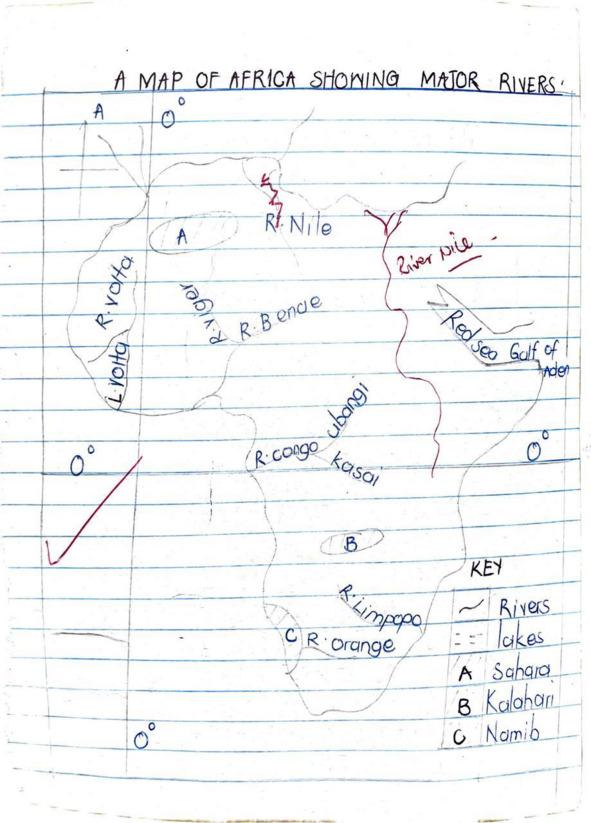 A MAP OF AFRICA SHOWING MAJOR RIVERS.
A
0°
R. Nile
A
River Nile
R. Volta
R. Niger
R. Benue
Red sea
Gulf of
Aden
L. Volta
ubangi
R. congo
kasai
0°
0°
B
KEY
R. Limpopo
C
R. orange
Rivers
lakes
A Sahara
B Kalahari
C Namib
0°